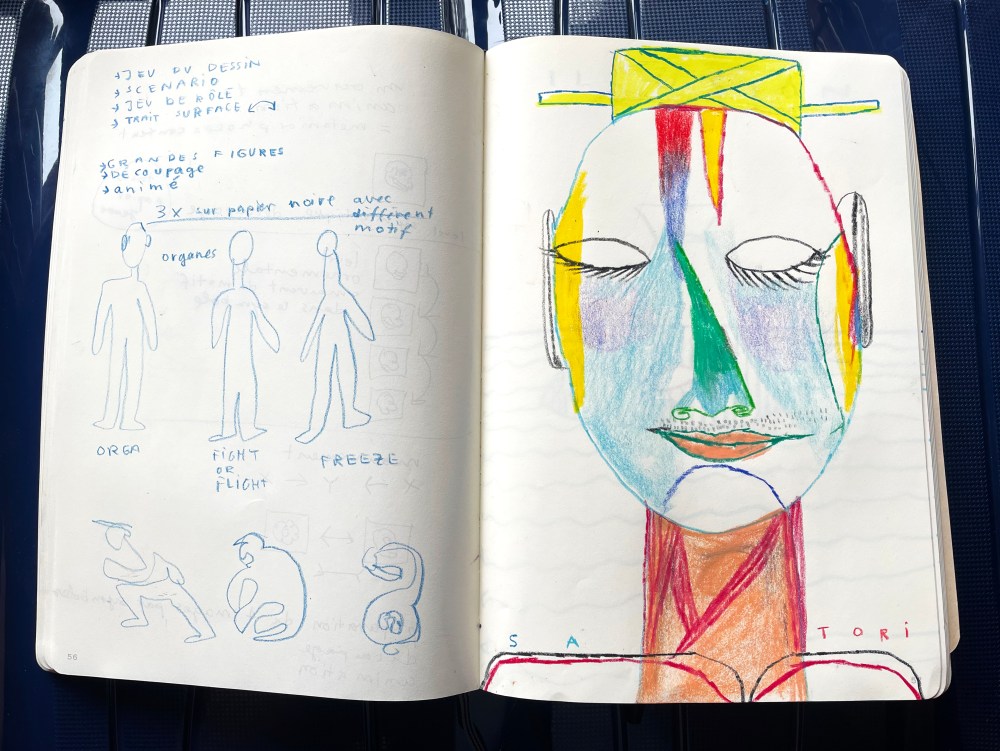 →JEU DU DESSIN
→SCENARIO
→JEU DE RÔLE
→TRAIT SURFACE
→GRANDES FIGURES
→DÉCOUPAGE
→animé
3X sur papier noire avec
différent
motif
organes
ORGA
FIGHT
OR
FLIGHT
FREEZE
56
SA TORI